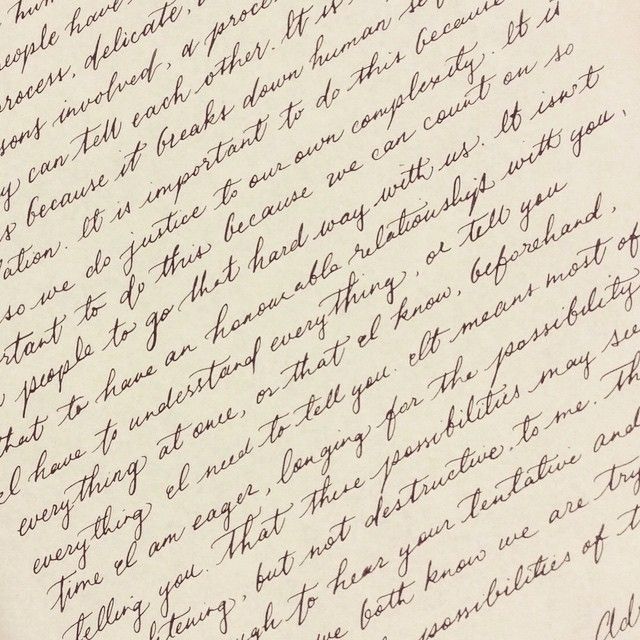 hum
people have
process, delicate,
sons involved, a proce
y can tell each other. It is
s because it breaks down human se
lation. It is important to do this because
so we do justice to our own complexity. It is
rtant to do this because we can count on so
people to go that hard way with us. It isn't
that to have an honourable relationships with you,
I have to understand everything, or tell you
everything at once, or that I know, beforehand,
everything I need to tell you. It means most of
time I am eager, longing for the possibility
telling you. That these possibilities may see
tening, but not destructive, to me. Th
gh to hear your tentative and
we both know we are try
possibilities of t
Ad